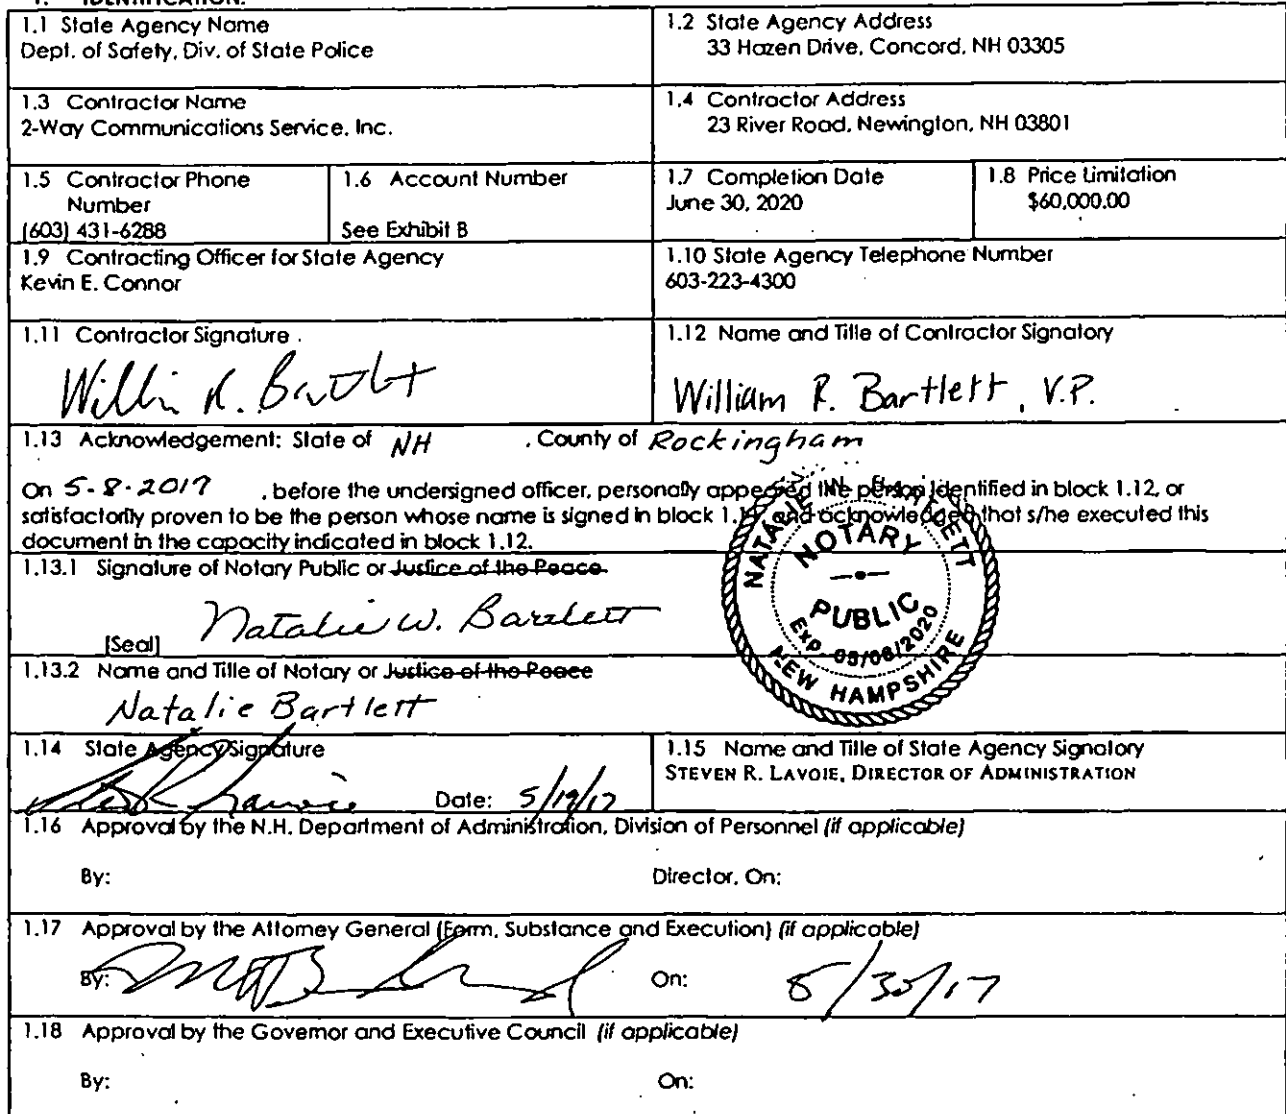 1. IDENTIFICATION.
1.1 State Agency Name
Dept. of Safety, Div. of State Police
1.2 State Agency Address
33 Hazen Drive, Concord, NH 03305
1.3 Contractor Name
2-Way Communications Service, Inc.
1.4 Contractor Address
23 River Road, Newington, NH 03801
1.5 Contractor Phone
Number
(603) 431-6288
1.6 Account Number
See Exhibit B
1.7 Completion Date
June 30, 2020
1.8 Price Limitation
$60,000.00
1.9 Contracting Officer for State Agency
Kevin E. Connor
1.10 State Agency Telephone Number
603-223-4300
1.11 Contractor Signature
1.12 Name and Title of Contractor Signatory
William R. Bartlett, V.P.
1.13 Acknowledgement: State of NH , County of Rockingham
On 5-8-2017 , before the undersigned officer, personally appeared the person identified in block 1.12, or
satisfactorily proven to be the person whose name is signed in block 1.11, and acknowledged that s/he executed this
document in the capacity indicated in block 1.12.
1.13.1 Signature of Notary Public or Justice of the Peace
Natalie W. Bartlett
[Seal]
NATALIE W. BARTLETT
NOTARY
PUBLIC
EXP. 05/06/2020
NEW HAMPSHIRE
1.13.2 Name and Title of Notary or Justice of the Peace
Natalie Bartlett
1.14 State Agency Signature
Date: 5/19/17
1.15 Name and Title of State Agency Signatory
STEVEN R. LAVOIE, DIRECTOR OF ADMINISTRATION
1.16 Approval by the N.H. Department of Administration, Division of Personnel (if applicable)
By: Director, On:
1.17 Approval by the Attorney General (Form, Substance and Execution) (if applicable)
By: On: 5/30/17
1.18 Approval by the Governor and Executive Council (if applicable)
By: On: